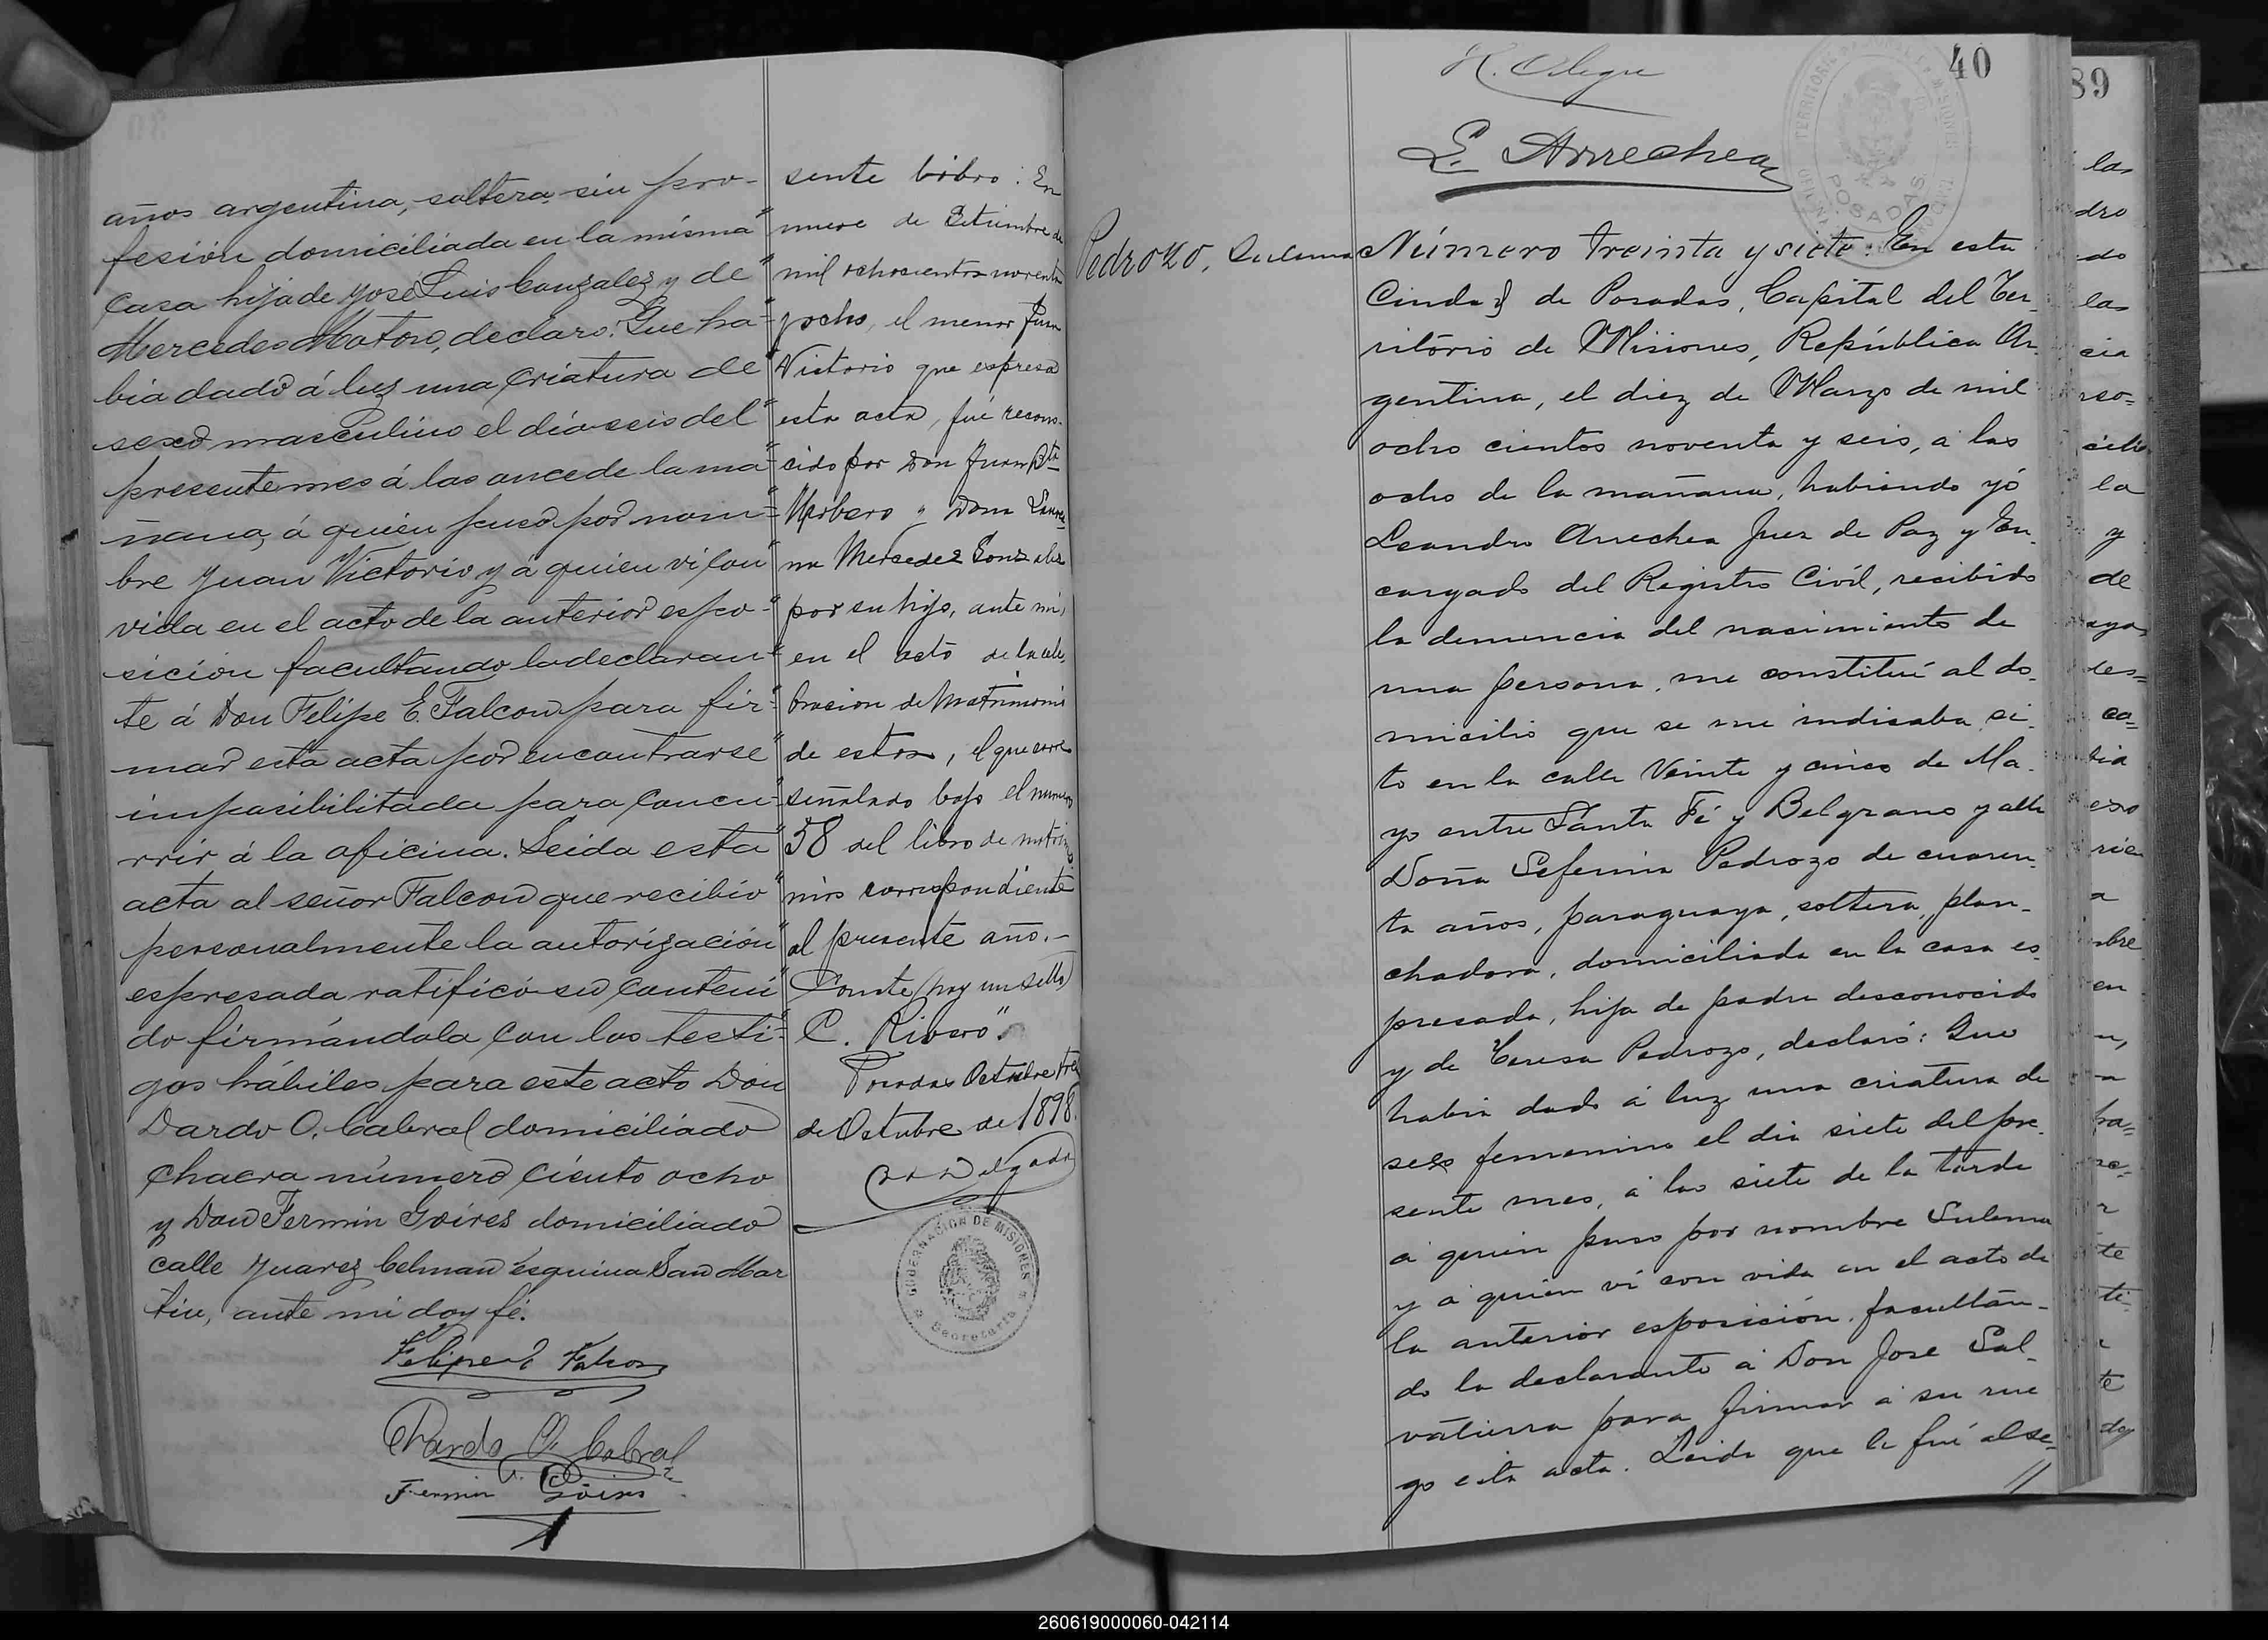 años argentina, soltera sin pro-
fesión domiciliada en la misma
casa hija de José Luis Gonzalez y de
Mercedes Matoso, declaro: Que ha-
bia dado á luz una criatura de
sexo masculino el día seis del
presente mes á las once de la ma-
ñana, á quien puso por nom-
bre Juan Victorio y á quien vi con
vida en el acto de la anterior espo-
sición facultando la declaran-
te á Don Felipe E. Falcon para fir-
mar esta acta por encontrarse
imposibilitada para concu-
rrir á la oficina. Leida esta
acta al señor Falcon que recibió
personalmente la autorización
espresada ratificó su conteni-
do firmándola con los testi-
gos hábiles para este acto Don
Dardo O. Cabral domiciliado
chacra número ciento ocho
y Don Fermin Goires domiciliado
calle Juarez Celman esquina San Mar
tin, ante mi doy fé.
Felipe E Falcon
Dardo O. Cabral
Fermin G. Goires
sente libro: En
nueve de Setiembre de
mil ochocientos noventa
y ocho, el menor Juan
Victorio que espresa
esta acta, fué recono-
cido por Don Juan Bta
y Dona
na Mercedes Gonzalez
por su hijo, ante mi,
en el acto de la cele
bracion de Matrimonio
de estos, el que corre
señalado bajo el numero
58 del libro de matrimo
nios correspondiente
al presente año.-
Conste (hay un sello)
C. Rivero"
Posadas Octubre tres
de Octubre de 1898.
Delgado
GOBERNACION DE MISIONES
Secretaria
40
R. Alegre
L. Arrechea
TERRITORIO NACIONAL DE MISIONES
POSADAS
Pedrozo, Sulema
Número treinta y siete: En esta
Ciudad de Posadas, Capital del Ter-
ritório de Misiones, República Ar-
gentina, el diez de Marzo de mil
ocho cientos noventa y seis, á las
ocho de la mañana, habiendo yó
Leandro Arrechea Juez de Paz y En-
cargado del Registro Civil, recibido
la denuncia del nacimiento de
una persona, me constituí al do-
micilio que se me indicaba, si-
to en la calle Veinte y cinco de Ma-
yo entre Santa Fé y Belgrano y alli
Doña Seferina Pedrozo de cuaren-
ta años, paraguaya, soltera, plan-
chadora, domiciliada en la casa es-
presada, hija de padre desconocido
y de Teresa Pedrozo, declaró: Que
habia dado á luz una criatura de
sexo femenino el dia siete del pre-
sente mes, á las siete de la tarde
á quien puso por nombre Sulema
y á quien ví con vida en el acto de
la anterior esposición, facultan-
do la declarante á Don Jose Sal-
vatierra para firmar á su rue
go esta acta. Leida que le fué al se-
//
89
las
dro
do
las
cia
la
y
de
des=
co=
eso
a
bre
en
a
te
ti-
te
doy
260619000060-042114